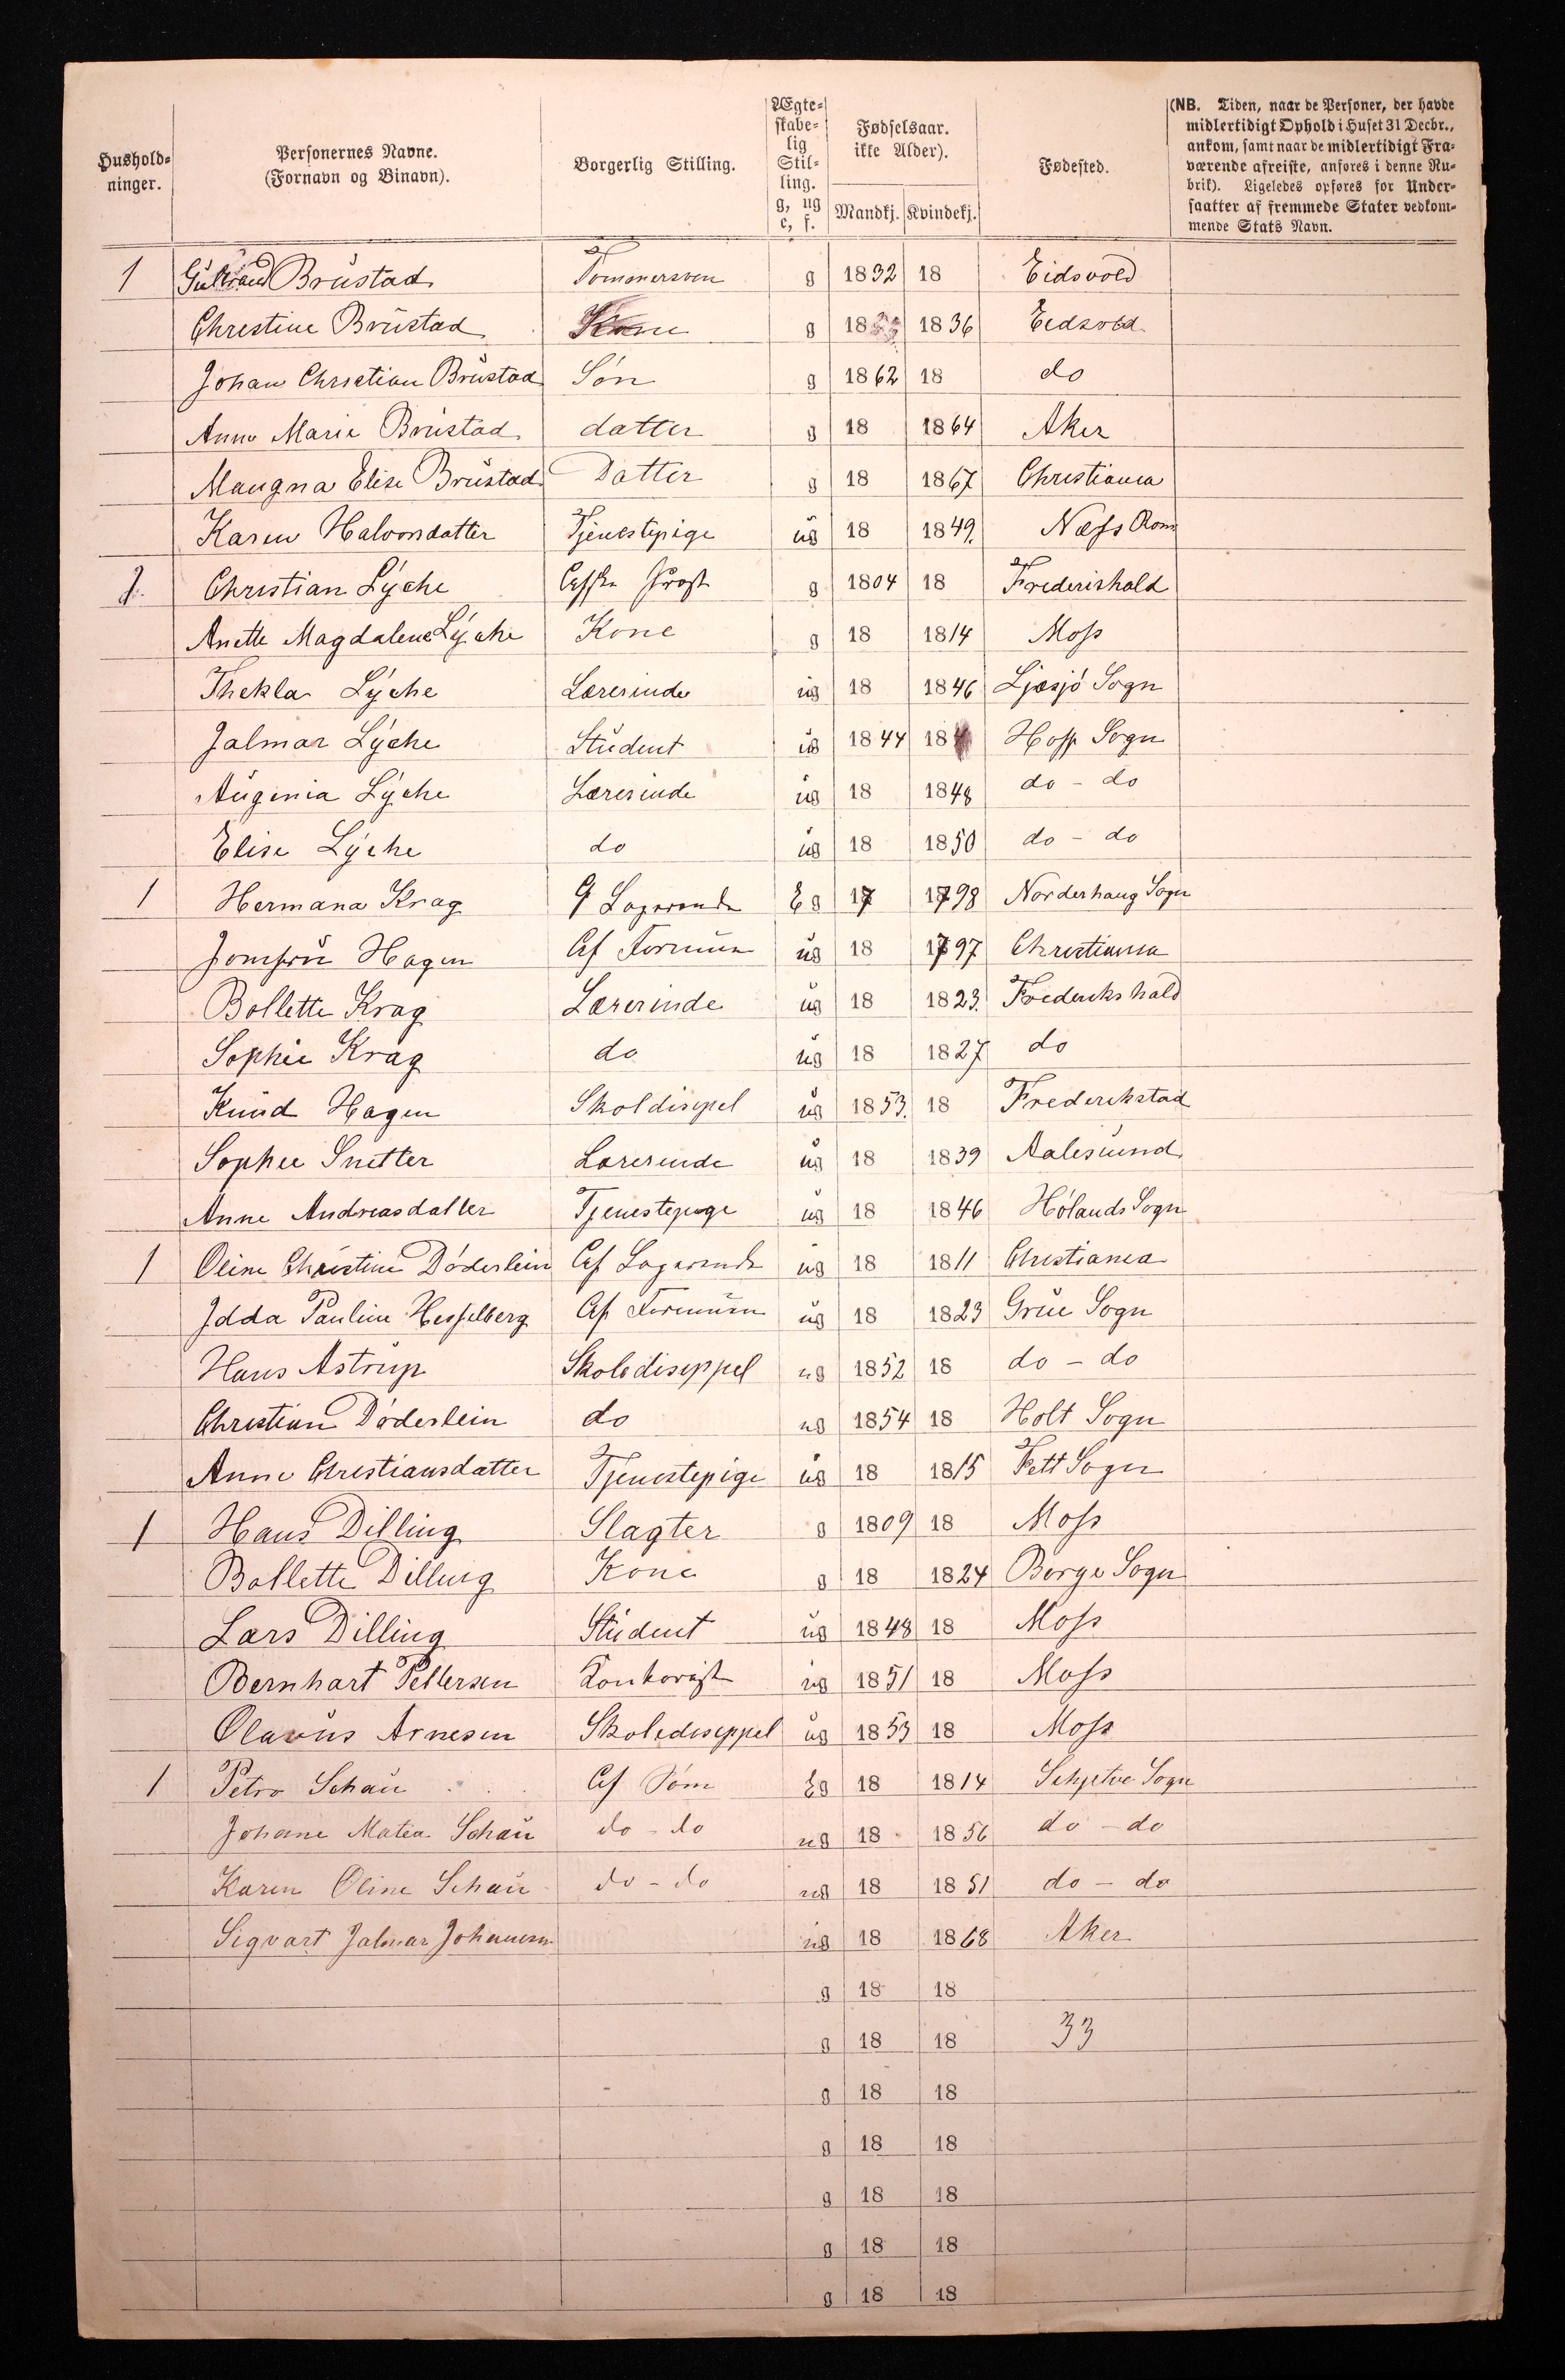 Hushold-
ninger.
Personernes Navne.
(Fornavn og Binavn).
Borgerlig Stilling.
Ægte-
skabe-
lig
Stil-
ling.
g, ug
e, f.
Fødselsaar.
ikke Alder).
Mandkj. Kvindekj.
Fødested.
(NB. Tiden, naar de Personer, der havde
midlertidigt Ophold i Huset 31 Decbr.,
ankom, samt naar de midlertidigt Fra-
værende afreiste, anføres i denne Ru-
brik). Ligeledes opføres for Under-
saatter af fremmede Stater vedkom-
mende Stats Navn.
1 Brüstad Tømmersven g 1832 18 Eidsvold
Christine Brüstad Kone g 18 1836 Eidsvold
Johan Christian Brüstad Søn g 1862 18 do
Anne Marie Brüstad datter g 18 1864 Aker
Maugna Elise Brüstad Datter g 18 1867 Christiania
Karen Halvorsdatter Tjenestepige üg 18 1849. Næss Rom
Christian Lÿche g 1804 18 Frederikshald
Anette Magdalene Lÿche Kone g 18 1814 Moss
Thekla Lÿche Lærerinde üg 18 1846 Sogn
Jalmar Lÿche Stüdent üg 1844 18 Hoff Sogn
Aügenia Lÿche Lærerinde üg 18 1848 do - do
Elise Lÿche do üg 18 1850 do - do
1 Hermana Krag Eg 17 1798 Norderhaug Sogn
Jomfrü Hagen Af Formüen üg 18 1797 Christiania
Bollette Krag Lærerinde üg 18 1823. Frederikshald
Sophie Krag do üg 18 1827 do
Knüd Hagen Skoldisipel üg 1853. 18 Frederikstad
Sophie Lærerinde üg 18 1839 Aalesünd
Anne Andreasdatter Tjenestepige üg 18 1846 Hölands Sogn
1 Oline Christine Döderlein üg 18 1811 Christiania
Jdda Pauline Hesselberg Af Formüen üg 18 1823 Grüe Sogn
Hans Astrüp Skolediseppel ug 1852 18 do - do
Christian Döderlein do ug 1854 18 Holt Sogn
Anne Christiansdatter Tjenestepige üg 18 1815 Fett Sogn
1 Hans Dilling Slagter g 1809 18 Moss
Bollette Dilling Kone g 18 1824 Borge Sogn
Lars Dilling Stüdent üg 1848 18 Moss
Bernhart Pettersen Kontorist üg 1851 18 Moss
Olavüs Arnesen Skolediseppel üg 1853 18 Moss
1 Petro Schaü Af Søm Eg 18 1814 Schjetve Sogn
Johane Matea Schaü do - do ug 18 1856 do - do
Karen Oline Schaü do - do ug 18 1851 do - do
Sigvart Jalmar Johansen üg 18 1868 Aker
g 18 18
g 18 18 33
g 18 18
g 18 18
g 18 18
g 18 18
g 18 18